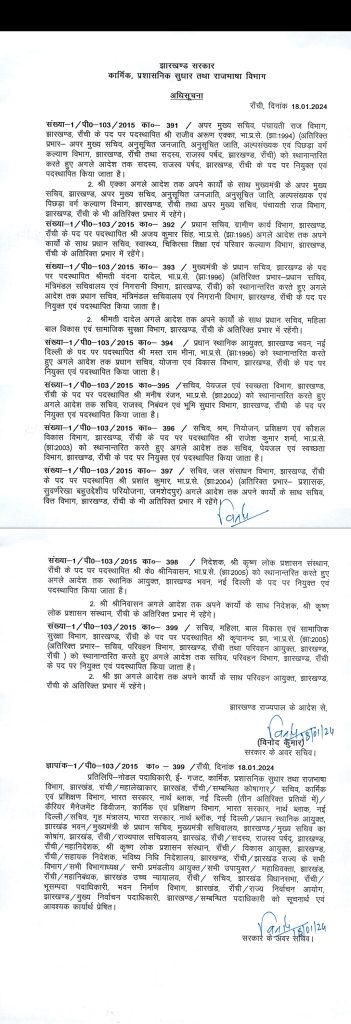 झारखण्ड सरकार
कार्मिक, प्रशासनिक सुधार तथा राजभाषा विभाग
अधिसूचना
राँची, दिनांक 18.01.2024
संख्या-1/पी0-103/2015 का०- 391 / अपर मुख्य सचिव, पंचायती राज विभाग,
झारखण्ड, राँची के पद पर पदस्थापित श्री राजीव अरूण एक्का, भा.प्र.से. (झा:1994) (अतिरिक्त
प्रभार- अपर मुख्य सचिव, अनुसूचित जनजाति, अनुसूचित जाति, अल्पसंख्यक एवं पिछड़ा वर्ग
कल्याण विभाग, झारखण्ड, राँची तथा सदस्य, राजस्व पर्षद, झारखण्ड, राँची) को स्थानान्तरित
करते हुए अगले आदेश तक सदस्य, राजस्व पर्षद, झारखण्ड, राँची के पद पर नियुक्त एवं
पदस्थापित किया जाता है।
2. श्री एक्का अगले आदेश तक अपने कार्यों के साथ मुख्यमंत्री के अपर मुख्य
सचिव, झारखण्ड, अपर मुख्य सचिव, अनुसूचित जनजाति, अनुसूचित जाति, अल्पसंख्यक एवं
पिछड़ा वर्ग कल्याण विभाग, झारखण्ड, राँची तथा अपर मुख्य सचिव, पंचायती राज विभाग,
झारखण्ड, राँची के भी अतिरिक्त प्रभार में रहेंगे।
संख्या-1/पी0-103/2015 का०- 392 / प्रधान सचिव, ग्रामीण कार्य विभाग, झारखण्ड,
राँची के पद पर पदस्थापित श्री अजय कुमार सिंह, भा.प्र.से. (झा:1995) अगले आदेश तक अपने
कार्यों के साथ प्रधान सचिव, स्वास्थ्य, चिकित्सा शिक्षा एवं परिवार कल्याण विभाग, झारखण्ड,
राँची के अतिरिक्त प्रभार में रहेंगे।
संख्या-1/पी0-103/2015 का०- 393 / मुख्यमंत्री के प्रधान सचिव, झारखण्ड के पद
पर पदस्थापित श्रीमती वंदना दादेल, भा.प्र.से. (झा:1996) (अतिरिक्त प्रभार-प्रधान सचिव,
मंत्रिमंडल सचिवालय एवं निगरानी विभाग, झारखण्ड, राँची) को स्थानान्तरित करते हुए अगले
आदेश तक प्रधान सचिव, मंत्रिमंडल सचिवालय एवं निगरानी विभाग, झारखण्ड, राँची के पद पर
नियुक्त एवं पदस्थापित किया जाता है।
2. श्रीमती दादेल अगले आदेश तक अपने कार्यों के साथ प्रधान सचिव, महिला
बाल विकास एवं सामाजिक सुरक्षा विभाग, झारखण्ड, राँची के अतिरिक्त प्रभार में रहेंगी।
संख्या-1/पी0-103/2015 का०- 394 / प्रधान स्थानिक आयुक्त, झारखण्ड भवन, नई
दिल्ली के पद पर पदस्थापित श्री मस्त राम मीना, भा.प्र.से. (झा:1996) को स्थानान्तरित करते
हुए अगले आदेश तक प्रधान सचिव, योजना एवं विकास विभाग, झारखण्ड, राँची के पद पर
नियुक्त एवं पदस्थापित किया जाता है।
संख्या-1/पी0-103/2015 का०-395 /सचिव, पेयजल एवं स्वच्छता विभाग, झारखण्ड,
राँची के पद पर पदस्थापित श्री मनीष रंजन, भा.प्र.से. (झा:2002) को स्थानान्तरित करते हुए
अगले आदेश तक सचिव, राजस्व, निबंधन एवं भूमि सुधार विभाग, झारखण्ड, राँची के पद पर
नियुक्त एवं पदस्थापित किया जाता है।
संख्या-1/पी0-103/2015 का०- 396 / सचिव, श्रम, नियोजन, प्रशिक्षण एवं कौशल
विकास विभाग, झारखण्ड, राँची के पद पर पदस्थापित श्री राजेश कुमार शर्मा, भा.प्र.से.
(झा:2003) को स्थानान्तरित करते हुए अगले आदेश तक सचिव, पेयजल एवं स्वच्छता
विभाग, झारखण्ड, राँची के पद पर नियुक्त एवं पदस्थापित किया जाता है।
संख्या-1/पी0-103/2015 का०- 397 / सचिव, जल संसाधन विभाग, झारखण्ड, राँची
के पद पर पदस्थापित श्री प्रशांत कुमार, भा.प्र.से. (झा:2004) (अतिरिक्त प्रभार- प्रशासक,
सुवर्णरेखा बहुउद्देशीय परियोजना, जमशेदपुर) अगले आदेश तक अपने कार्यों के साथ सचिव,
वित्त विभाग, झारखण्ड, राँची के भी अतिरिक्त प्रभार में रहेंगे।
संख्या-1/पी0-103/2015 का०- 398 / निदेशक, श्री कृष्ण लोक प्रशासन संस्थान,
राँची के पद पर पदस्थापित श्री के0 श्रीनिवासन, भा.प्र.से. (झा:2005) को स्थानान्तरित करते हुए
अगले आदेश तक स्थानिक आयुक्त, झारखण्ड भवन, नई दिल्ली के पद पर नियुक्त एवं
पदस्थापित किया जाता है।
2. श्री श्रीनिवासन अगले आदेश तक अपने कार्यों के साथ निदेशक, श्री कृष्ण
लोक प्रशासन संस्थान, झारखण्ड, राँची के अतिरिक्त प्रभार में रहेंगे।
संख्या-1/पी0-103/2015 का०- 399 / सचिव, महिला, बाल विकास एवं सामाजिक
सुरक्षा विभाग, झारखण्ड, राँची के पद पर पदस्थापित श्री कृपानन्द झा, भा.प्र.से. (झा:2005)
(अतिरिक्त प्रभार- सचिव, परिवहन विभाग, झारखण्ड, राँची तथा परिवहन आयुक्त, झारखण्ड,
राँची ) को स्थानान्तरित करते हुए अगले आदेश तक सचिव, परिवहन विभाग, झारखण्ड, राँची
के पद पर नियुक्त एवं पदस्थापित किया जाता है।
2. श्री झा अगले आदेश तक अपने कार्यों के साथ परिवहन आयुक्त, झारखण्ड,
राँची के अतिरिक्त प्रभार में रहेंगे।
झारखण्ड राज्यपाल के आदेश से,
18/01/24
(विनोद कुमार)
सरकार के अवर सचिव।
ज्ञापांक-1/पी0-103/2015 का० - 399 /राँची, दिनांक 18.01.2024
प्रतिलिपि-नोडल पदाधिकारी, ई- गजट, कार्मिक, प्रशासनिक सुधार तथा राजभाषा
विभाग, झारखंड, रांची/महालेखाकार, झारखंड, राँची/सम्बन्धित कोषागार/ सचिव, कार्मिक
एवं प्रशिक्षण विभाग, भारत सरकार, नार्थ ब्लाक, नई दिल्ली (तीन अतिरिक्त प्रतियों में)/
कैरियर मैनेजमेंट डिवीजन, कार्मिक एवं प्रशिक्षण विभाग, भारत सरकार, नार्थ ब्लाक, नई
दिल्ली/सचिव, गृह मंत्रालय, भारत सरकार, नार्थ ब्लॉक, नई दिल्ली/ प्रधान स्थानिक आयुक्त,
झारखंड भवन/मुख्यमंत्री के प्रधान सचिव, मुख्यमंत्री सचिवालय, झारखण्ड/मुख्य सचिव का
कोषांग, झारखंड, राँची/ राज्यपाल सचिवालय, झारखंड, राँची/सदस्य, राजस्व पर्षद, झारखण्ड,
राँची/महानिदेशक, श्री कृष्ण लोक प्रशासन संस्थान, राँची/ विकास आयुक्त, झारखण्ड,
राँची/सहायक निदेशक, भविष्य निधि निदेशालय, झारखण्ड, राँची/झारखंड राज्य के सभी
विभाग/सभी विभागाध्यक्ष/ सभी प्रमंडलीय आयुक्त/सभी उपायुक्त/ महाधिवक्ता, झारखंड,
राँची/महानिबंधक, झारखंड उच्च न्यायालय, राँची/ सचिव, झारखंड विधानसभा, राँची/
भूसम्पदा पदाधिकारी, भवन निर्माण विभाग, झारखंड, राँची/राज्य निर्वाचन आयोग,
झारखण्ड/मुख्य निर्वाचन पदाधिकारी, झारखण्ड/सम्बन्धित पदाधिकारी को सूचनार्थ एवं
आवश्यक कार्यार्थ प्रेषित।
18/01/24
सरकार के अवर सचिव।